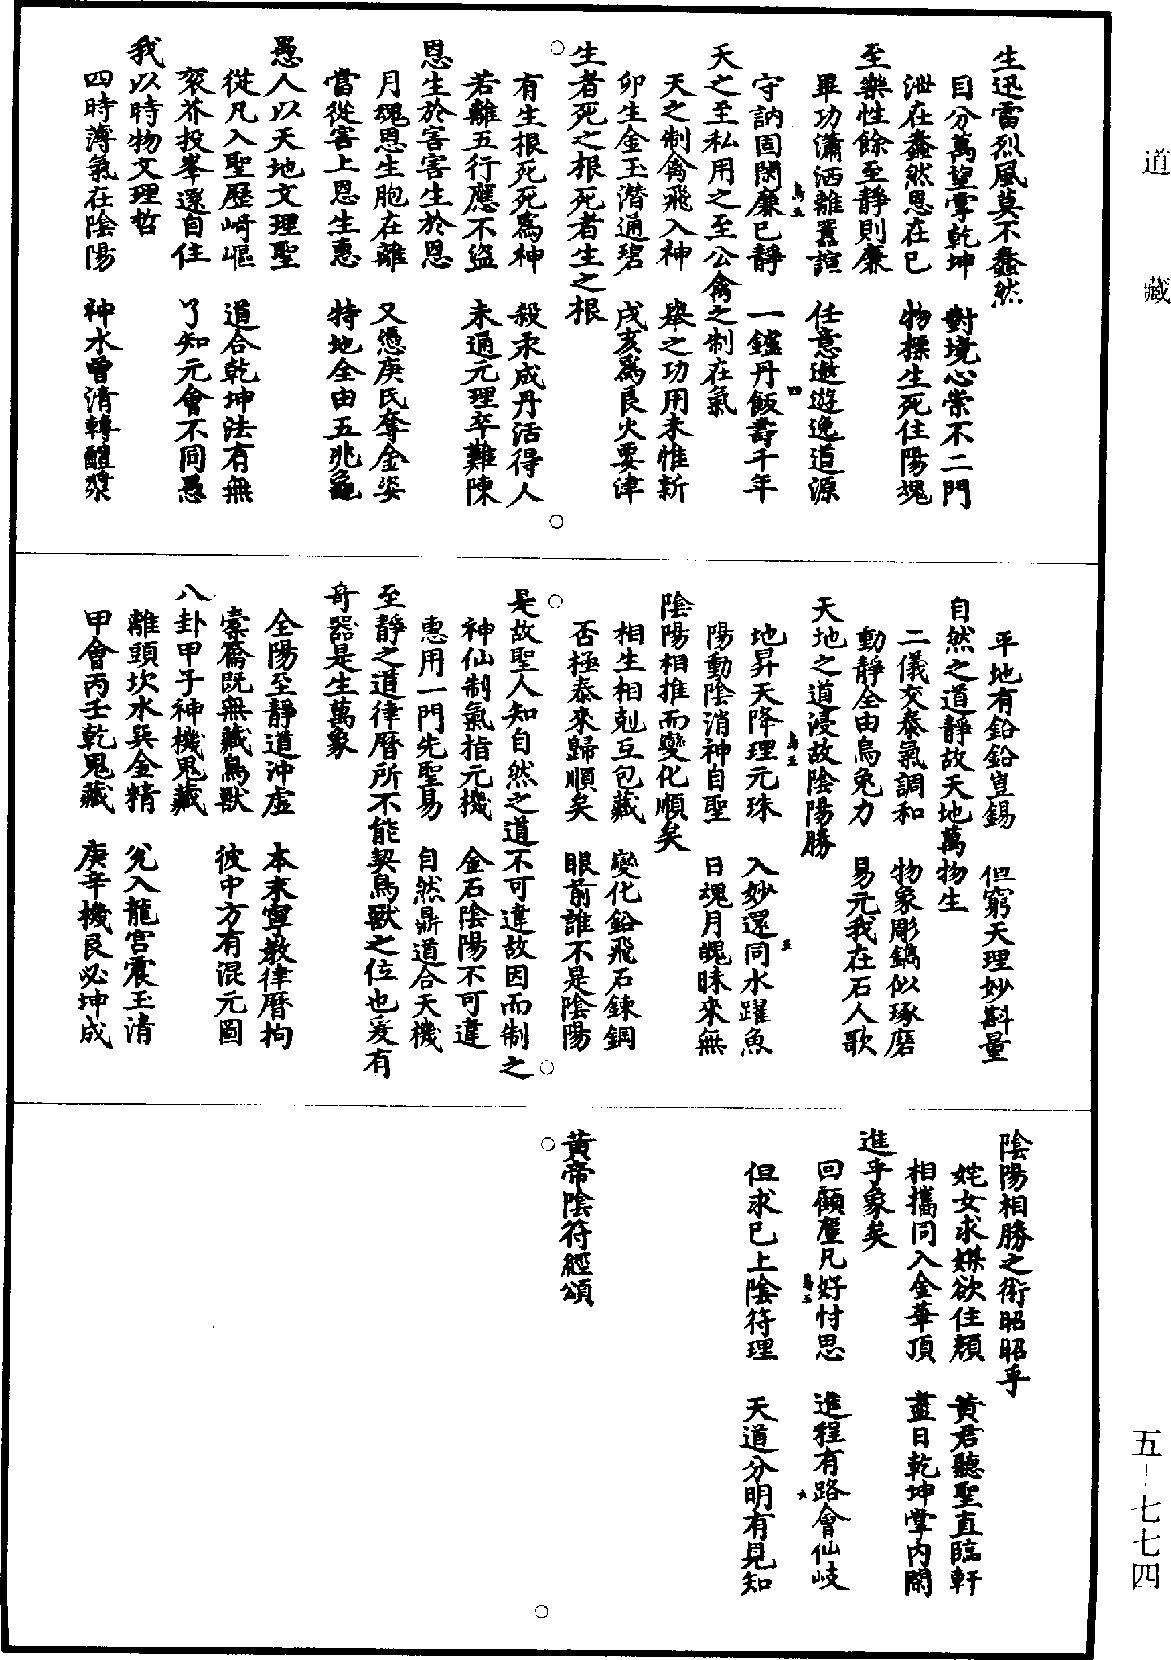 道藏
生迅雷烈風莫不蠢然
目分萬望掌乾坤　對境心崇不二門
泄在蠢然恩在已　物標生死住陽魂
至樂性餘至靜則廉
畢功瀟洒離囂諠　任意遨遊逸道源
守訥固閑廉已靜　一鑪丹飯壽千年
天之至私用之至公禽之制在氣
天之制禽飛入神　舉之功用未惟新
卯生金玉潛通碧　戌亥爲艮火要津
生者死之根死者生之根
有生根死死爲神　殺汞成丹活得人
若離五行應不盜　未通元理卒難陳
恩生於害害生於恩
月魂恩生胞在離　又憑庚氏奪金姿
當從害上恩生惠　特地全由五兆龜
愚人以天地文理聖
從凡入聖歷崎嶇　道合乾坤法有無
衮芥投峯還自住　了知元會不同愚
我以時物文理哲
四時薄氣在陰陽　神水曾清轉醴漿
平地有鉛鉛豈錫　但窮天理妙斟量
自然之道靜故天地萬物生
二儀交泰氣調和　物象彫鐫似琢磨
動靜全由烏兔力　易元我在石人歌
天地之道浸故陰陽勝
地昇天降理元珠　入妙還同水躍魚
陽動陰消神自聖　日魂月魄昧來無
陰陽相推而變化順矣
相生相剋互包藏　變化鉛飛石鍊鋼
否極泰來歸順矣　眼前誰不是陰陽
是故聖人知自然之道不可違故因而制之
神仙制氣指元機　金石陰陽不可違
惠用一門先聖易　自然鼎道合天機
至靜之道律曆所不能契鳥獸之位也爰有
奇器是生萬象
全陽至靜道沖虛　本末寧教律曆拘
橐籥既無藏鳥獸　彼中方有混元圖
八卦甲子神機鬼藏
離頭坎水巽金精　兊入龍宮震玉清
甲會丙壬乾鬼藏　庚辛機艮必坤成
陰陽相勝之術昭昭乎
姹女求媒欲住顏　黃君聽聖直臨軒
相攜同入金華頂　盡日乾坤掌內閑
進乎象矣
回顧塵凡好忖思　進程有路會仙岐
但求已上陰符理　天道分明有見知
黃帝陰符經頌
五－七七四